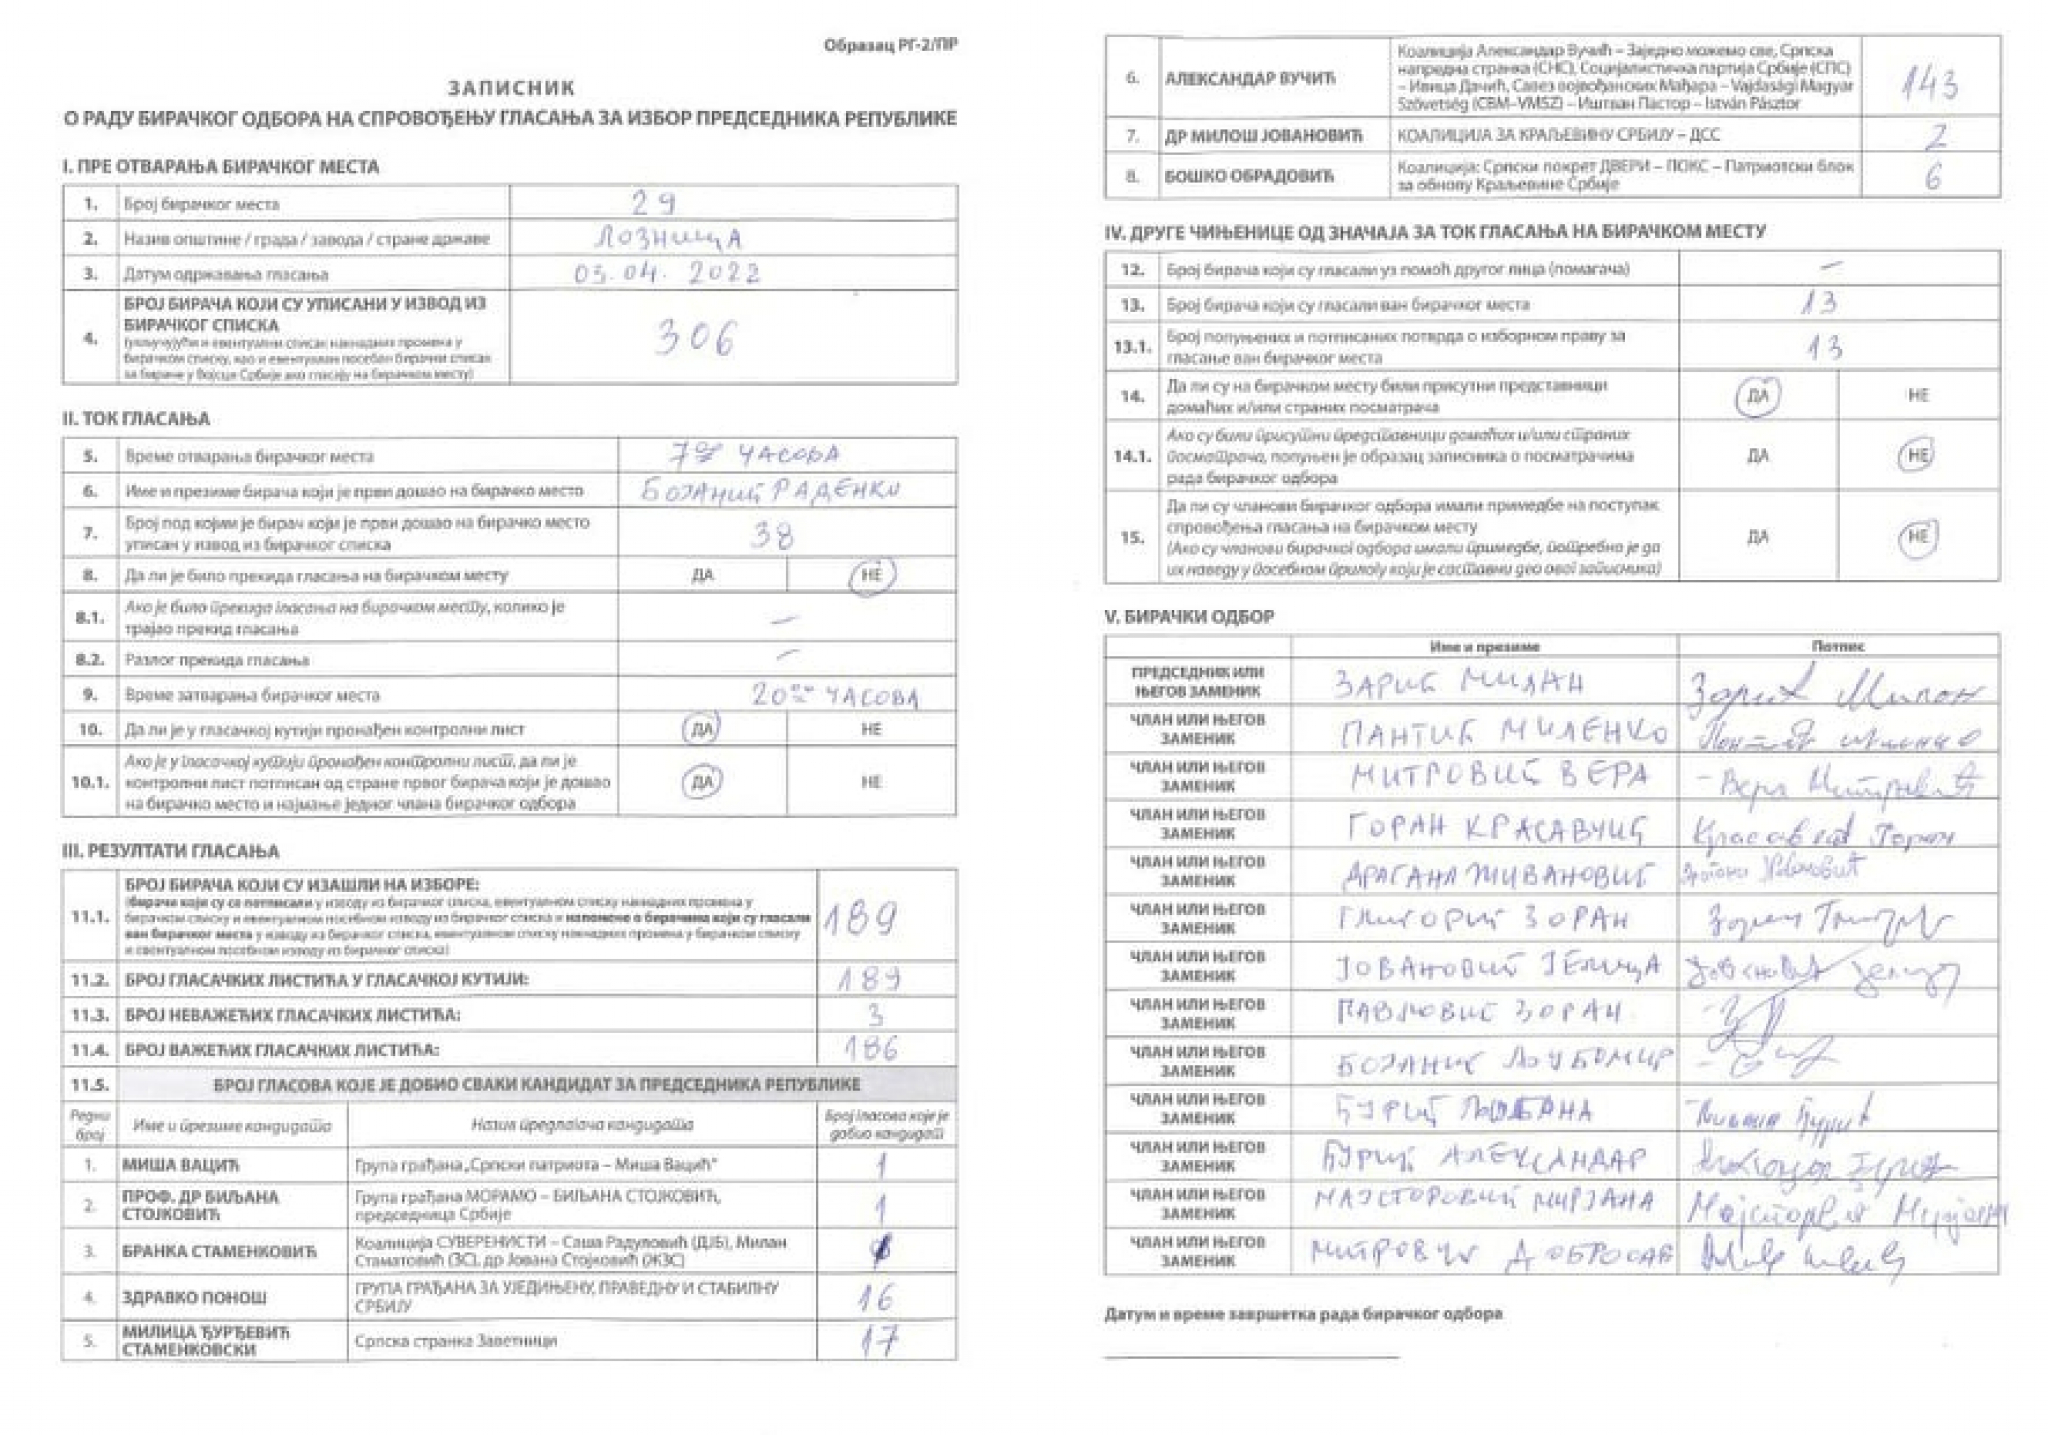 Образац РГ-2/ПР
ЗАПИСНИК
О РАДУ БИРАЧКОГ ОДБОРА НА СПРОВОЂЕЊУ ГЛАСАЊА ЗА ИЗБОР ПРЕДСЕДНИКА РЕПУБЛИКЕ
I. ПРЕ ОТВАРАЊА БИРАЧКОГ МЕСТА
1. Број бирачког места 29
2. Назив општине / града / завода / стране државе ЛОЗНИЦА
3. Датум одржавања гласања 03.04.2022
4. БРОЈ БИРАЧА КОЈИ СУ УПИСАНИ У ИЗВОД ИЗ
БИРАЧКОГ СПИСКА
(укључујући и евентуални списак накнадних промена у
бирачком списку, као и евентуалан посебан бирачки списак
за бираче у Војсци Србије ако гласају на бирачком месту)
306
II. ТОК ГЛАСАЊА
5. Време отварања бирачког места 7 00 ЧАСОВА
6. Име и презиме бирача који је први дошао на бирачко место БОЈАНИЋ РАДЕНКО
7. Број под којим је бирач који је први дошао на бирачко место
уписан у извод из бирачког списка 38
8. Да ли је било прекида гласања на бирачком месту ДА НЕ
8.1. Ако је било прекида гласања на бирачком месту, колико је
трајао прекид гласања –
8.2. Разлог прекида гласања –
9. Време затварања бирачког места 20 00 ЧАСОВА
10. Да ли је у гласачкој кутији пронађен контролни лист ДА НЕ
10.1. Ако је у гласачкој кутији пронађен контролни лист, да ли је
контролни лист потписан од стране првог бирача који је дошао
на бирачко место и најмање једног члана бирачког одбора ДА НЕ
III. РЕЗУЛТАТИ ГЛАСАЊА
11.1. БРОЈ БИРАЧА КОЈИ СУ ИЗАШЛИ НА ИЗБОРЕ:
(бирачи који су се потписали у изводу из бирачког списка, евентуалном списку накнадних промена у
бирачком списку и евентуалном посебном изводу из бирачког списка и напомене о бирачима који су гласали
ван бирачког места у изводу из бирачког списка, евентуалном списку накнадних промена у бирачком списку
и евентуалном посебном изводу из бирачког списка)
189
11.2. БРОЈ ГЛАСАЧКИХ ЛИСТИЋА У ГЛАСАЧКОЈ КУТИЈИ: 189
11.3. БРОЈ НЕВАЖЕЋИХ ГЛАСАЧКИХ ЛИСТИЋА: 3
11.4. БРОЈ ВАЖЕЋИХ ГЛАСАЧКИХ ЛИСТИЋА: 186
11.5. БРОЈ ГЛАСОВА КОЈЕ ЈЕ ДОБИО СВАКИ КАНДИДАТ ЗА ПРЕДСЕДНИКА РЕПУБЛИКЕ
Редни број Име и презиме кандидата Назив предлагача кандидата Број гласова које је добио кандидат
1. МИША ВАЦИЋ Група грађана „Српски патриота – Миша Вацић“ 1
2. ПРОФ. ДР БИЉАНА СТОЈКОВИЋ Група грађана МОРАМО – БИЉАНА СТОЈКОВИЋ,
председница Србије 1
3. БРАНКА СТАМЕНКОВИЋ Коалиција СУВЕРЕНИСТИ – Саша Радуловић (ДЈБ), Милан
Стаматовић (ЗС), др Јована Стојковић (ЖЗС)
4. ЗДРАВКО ПОНОШ ГРУПА ГРАЂАНА ЗА УЈЕДИЊЕНУ, ПРАВЕДНУ И СТАБИЛНУ
СРБИЈУ 16
5. МИЛИЦА ЂУРЂЕВИЋ СТАМЕНКОВСКИ Српска странка Заветници 17
6. АЛЕКСАНДАР ВУЧИЋ Коалиција Александар Вучић – Заједно можемо све, Српска
напредна странка (СНС), Социјалистичка партија Србије (СПС)
– Ивица Дачић, Савез војвођанских Мађара – Vajdasági Magyar
Szövetség (СВМ–VMSZ) – Иштван Пастор – István Pásztor 143
7. ДР МИЛОШ ЈОВАНОВИЋ КОАЛИЦИЈА ЗА КРАЉЕВИНУ СРБИЈУ – ДСС 2
8. БОШКО ОБРАДОВИЋ Коалиција: Српски покрет ДВЕРИ – ПОКС – Патриотски блок
за обнову Краљевине Србије 6
IV. ДРУГЕ ЧИЊЕНИЦЕ ОД ЗНАЧАЈА ЗА ТОК ГЛАСАЊА НА БИРАЧКОМ МЕСТУ
12. Број бирача који су гласали уз помоћ другог лица (помагача) –
13. Број бирача који су гласали ван бирачког места 13
13.1. Број попуњених и потписаних потврда о изборном праву за
гласање ван бирачког места 13
14. Да ли су на бирачком месту били присутни представници
домаћих и/или страних посматрача ДА НЕ
14.1. Ако су били присутни представници домаћих и/или страних
посматрача, попуњен је образац записника о посматрачима
рада бирачког одбора ДА НЕ
15. Да ли су чланови бирачког одбора имали примедбе на поступак
спровођења гласања на бирачком месту
(Ако су чланови бирачког одбора имали примедбе, потребно је да
их наведу у посебном прилогу који је саставни део овог записника) ДА НЕ
V. БИРАЧКИ ОДБОР
Име и презиме Потпис
ПРЕДСЕДНИК ИЛИ ЊЕГОВ ЗАМЕНИК ЗАРИЋ МИЛАН Зарић Милан
ЧЛАН ИЛИ ЊЕГОВ ЗАМЕНИК ПАНТИЋ МИЛЕНКО Пантић Миленко
ЧЛАН ИЛИ ЊЕГОВ ЗАМЕНИК МИТРОВИЋ ВЕРА Вера Митровић
ЧЛАН ИЛИ ЊЕГОВ ЗАМЕНИК ГОРАН КРАСАВЧИЋ Горан
ЧЛАН ИЛИ ЊЕГОВ ЗАМЕНИК ДРАГАНА ЖИВАНОВИЋ Драгана Живановић
ЧЛАН ИЛИ ЊЕГОВ ЗАМЕНИК ГЛИГОРИЋ ЗОРАН Зоран
ЧЛАН ИЛИ ЊЕГОВ ЗАМЕНИК ЈОВАНОВИЋ ЈЕЛИЦА Јовановић Јелица
ЧЛАН ИЛИ ЊЕГОВ ЗАМЕНИК ПАВЛОВИЋ ЗОРАН
ЧЛАН ИЛИ ЊЕГОВ ЗАМЕНИК БОЈАНИЋ ЉУБОМИР
ЧЛАН ИЛИ ЊЕГОВ ЗАМЕНИК ЂУРИЋ Ђурић
ЧЛАН ИЛИ ЊЕГОВ ЗАМЕНИК ЂУРИЋ АЛЕКСАНДАР Александар Ђурић
ЧЛАН ИЛИ ЊЕГОВ ЗАМЕНИК МАЈСТОРОВИЋ МИРЈАНА Мајсторовић Мирјана
ЧЛАН ИЛИ ЊЕГОВ ЗАМЕНИК МИТРОВИЋ ДОБРОСАВ
Датум и време завршетка рада бирачког одбора